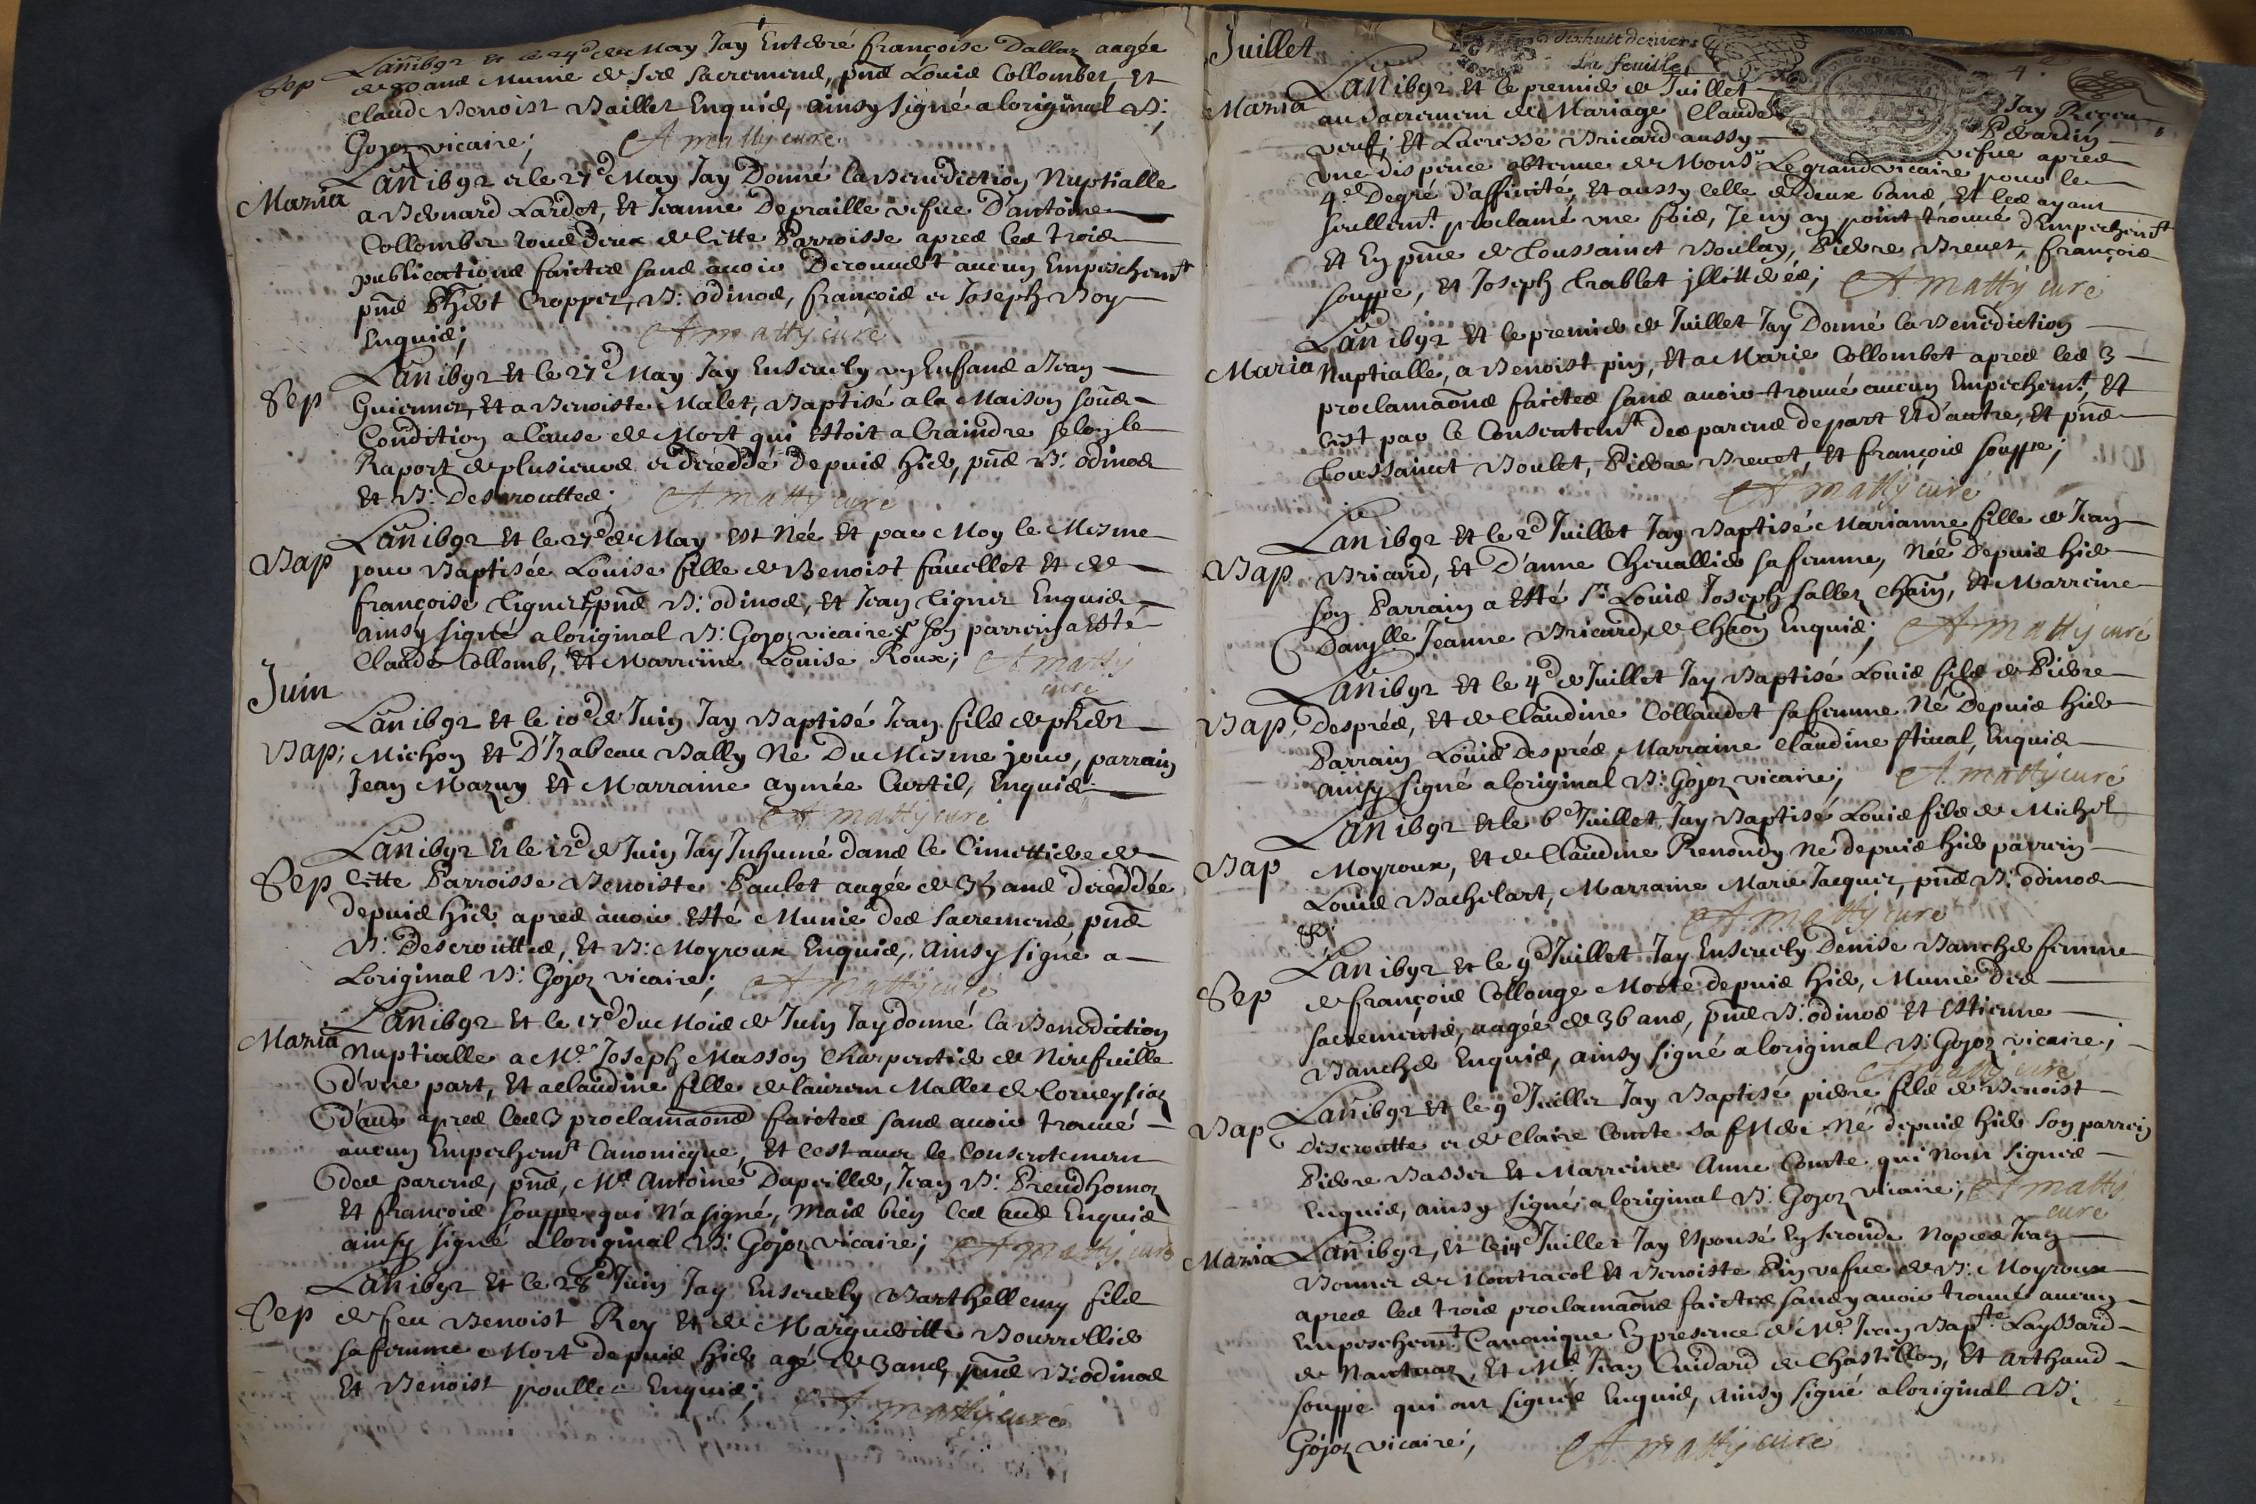 Sep
Lan 1692 et le 24e de May Jay Enterré françoise Dallaz aagée
de 80 ans Munie de ses sacremens, pns Loüis Collombet, et
claude Benoist Baillet Enquis, ainsy signé a loriginal B:
Gojoz vicaire; A matty curé
Maria
Lan 1692 et le 27e May Jay Donné la Benediction Nuptialle
a Bernard Lardet, et Jeanne Depraille vefue D'antoine
Collombet tous deux de Cette Parroisse apres les trois
publications faictes sans auoir Decouuert aucun Empeschemt
pns Phbert Croppet, B: odinos, françois et Joseph Boy
Enquis; A matty curé
Sep
Lan 1692 et le 27e May Jay Enseuely un Enfans a Jean
Guiennet, et a Benoiste Malet, Baptisé a la Maison sous
Condition a Cause de Mort qui Estoit a Craindre selon le
Raport de plusieurs et decedé depuis hier, pns B: odinos
et B: Descrouttes; A. matty curé
Bap
Lan 1692 et le 27e de May est Née et par Moy le Mesme
jour Baptisée Louise fille de Benoist fauellet et de
françoise Lignier, pns B: odinos, et Jean Lignier Enquis
ainsy signé a loriginal B: Gojoz vicaire son parrein a Esté
Claude Collomb, et Marreine Louise Roux; A matty
curé
Juin
Bap;
Lan 1692 et le 10e de Juin Jay Baptisé Jean fils de phbert
Michon et D'Izabeau Bally Né Du Mesme jour, parrain
Jean Mazuy et Marraine aymée Curtil, Enquis
A matty curé
Sep
Lan 1692 et le 12e de Juin Jay Inhumé dans le Cimettiere de
Cette Parroisse Benoiste Paulet aagée de 35 ans decedée
depuis hier apres auoir Esté Munie des sacremens pns
B: Descrouttes, et B: Moyroux Enquis, Ainsy signé a
Loriginal B: Gojoz vicaire; A matty curé
Maria
Lan 1692 et le 17e du Mois de Juin Jay donné la Benediction
Nuptialle a Me Joseph Masson Charpentier de Nirefuille
D'vne part, et a claudine fille de laurem Mallet de Corueyssiaz
D'au apres les 3 proclamaons faictes sans auoir trouué
aucun Empechemt Canonicque, et Cest auec le Consentement
Des parens, pns, Me Antoine Duperiller, Jean B: Preudhomoz
et françois souppe qui N'a signé, Mais bien les aus Enquis
ainsy signé a loriginal B: Gojoz vicaire; A matty curé
Sep
Lan 1692 et le 28e Juin Jay Enseuely Barthellemy fils
de feu Benoist Rey et de Margueritte Bourrellier
sa femme Mort depuis hier agé de 3 ans, pns B: odinos
et Benoist poullet Enquis; A matty curé
Juillet
dixhuit deniers
La feuille
4e
Maria
Lan 1692 et le premier de Juillet Jay Receu
au Sacrement de Mariage Claude Peuardin
veuf; et Lucresse Bricard aussy vefue apres
vne dispence obtenue de Monsr Le grand vicaire pour le
4e Degré d'affinité, et aussy celle de deux bans, et les ayant
seullemt proclamé vne fois, Je n'y ay point trouué d'Empechemt
et En pns de Toussainct Boulay, Pierre Breuet, françois
souppe, et Joseph Crablet jllitterés; A matty curé
Maria
Lan 1692 et le premier de Juillet Jay Donné la Benediction
Nuptialle, a Benoist pin, et a Marie Collombet apres les 3
proclamaons faictes sans auoir trouué aucun Empechemt, et
Cest par le Consentemt des parens de part et d'autre, et pns
Toussainct Boulet, Pierre Breuet, et françois souppe;
A matty curé
Bap
Lan 1692 et le 2e Juillet Jay Baptisé Marianne fille de Jean
Bricard, et D'anne Cheuallier sa femme, Née Depuis hier
son Parrain a Esté Sr Louis Joseph sallez Chain, et Marreine
Danylle Jeanne Bricard, de Chaon Enquis; A matty curé
Bap,
Lan 1692 et le 4e de Juillet Jay Baptisé Louis fils de Pierre
Despres, et de Claudine Collaudet sa femme Né Depuis hier
Parrain Louis despres, Marraine Claudine stiual, Enquis
ainsy signé a loriginal B: Gojoz vicaire; A. matty curé
Bap
Lan 1692 et le 6e Juillet Jay Baptisé Louis fils de Michel
Moyroux, et de Claudine Renondy Né depuis hier parrein
Louis Bachelart, Marraine Marie Jacquet, pns B: odinos
&c: A matty curé
Sep
Lan 1692 et le 9e Juillet Jay Enseuely Denise Bancher femme
de françois Collonge Morte depuis hier, Munie des
sacrements, aagée de 36 ans, pns B: odinos et Estienne
Bancher Enquis, ainsy signé a loriginal B: Gojoz vicaire;
A matty curé
Bap
Lan 1692 et le 9e Juillet Jay Baptisé pierre fils de Benoist
Descroutte et de Claire Comte sa feme Né depuis hier son parrein
Pierre Basset et Marreine Anne Comte qui Nont signés
Enquis, ainsy signé a loriginal B: Gojoz vicaire; A matty
curé
Maria
Lan 1692, et le 14e Juillet Jay Espousé En seconde Nopces Jean
Bonnet de Montracol et Benoiste Pin vefue de B: Moyroux
apres les trois proclamaons faictes sans y auoir trouué aucun
Empeschemt Canonique En presence de Me Jean Bapte Layssard
de Nantuaz, et Me Jean Cuidard de Chastillon, et arthaud
souppe qui ont signés Enquis, ainsy signé a loriginal B:
Gojoz vicaire; A. matty curé